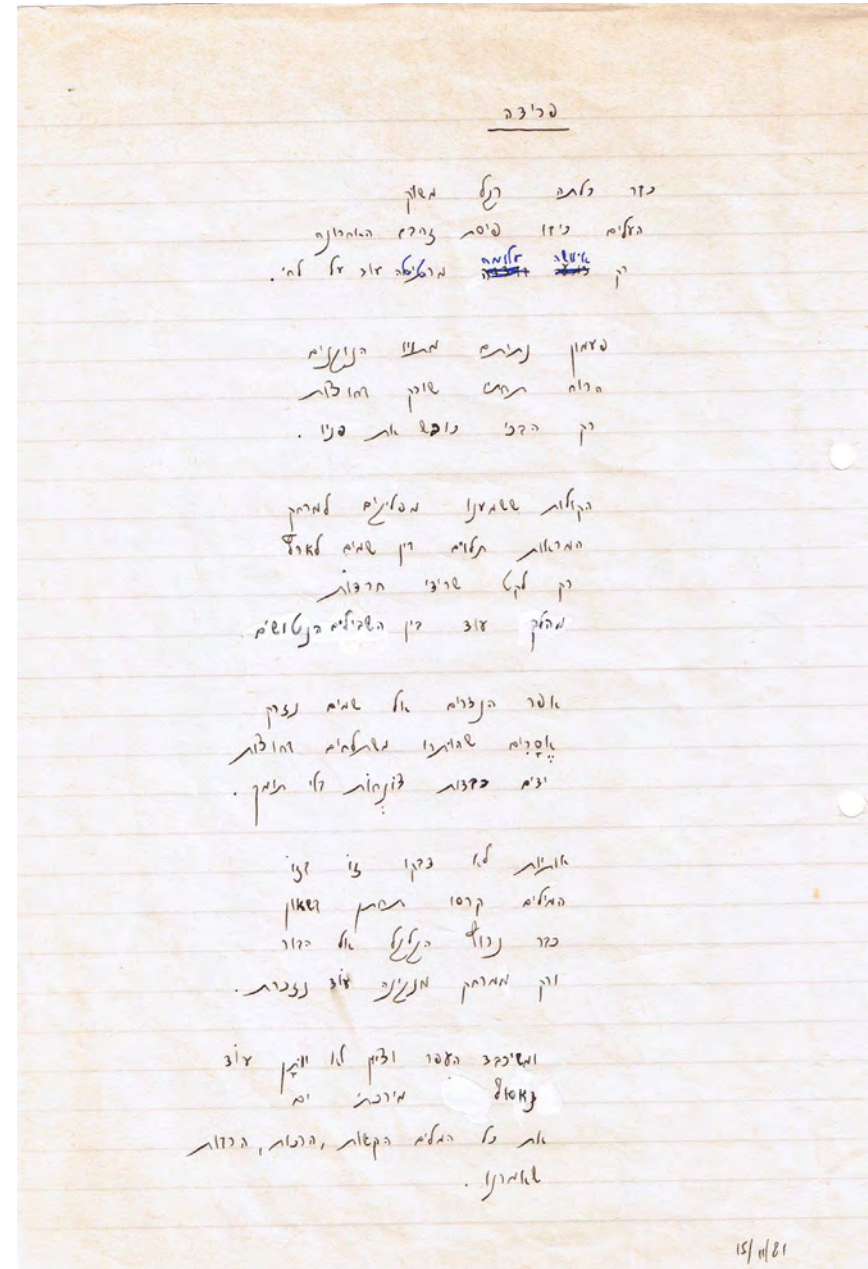 פרידה
כבר כלתה רגל משוק
העלים כיסו פיסת זהבם האחרונה
רק איוושה עלומה מרטיטה עוד על לחי.
פעמון נתיתם מתוי הנוגנים
הרוח תחתיו שורק בחוצות
רק הבכי כופש את פניו.
הקולות ששמענו מפליגים למרחק
המראות תלוים בין שמים לארץ
רק לקט שרידי חרדות
מהלך עוד בין השבילים הנטושים
אפר הנדרים אל שמים נזרק
אֱסָרִים שהותרו משתלחים בחוצות
ידים כבדות צונְחוֹת בלי תומך.
אותיות לא דבקו זוֹ בזוֹ
המילים קרסו תחתן בשאון
כבר נרוץ הגלגל אל הבור
ורק ממרחק מנגינה עוֹד נזכרת.
ומשיכבד העפר וציון לא יוּתָן עוֹד
נאסוף מירכתי ים
את כל המלים הקשות, הרכות, הרבות
שאמרנו.
15/11/81